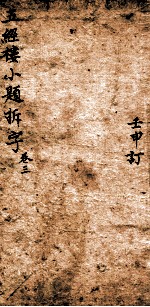 五經樓小題拆字 卷三
壬申訂